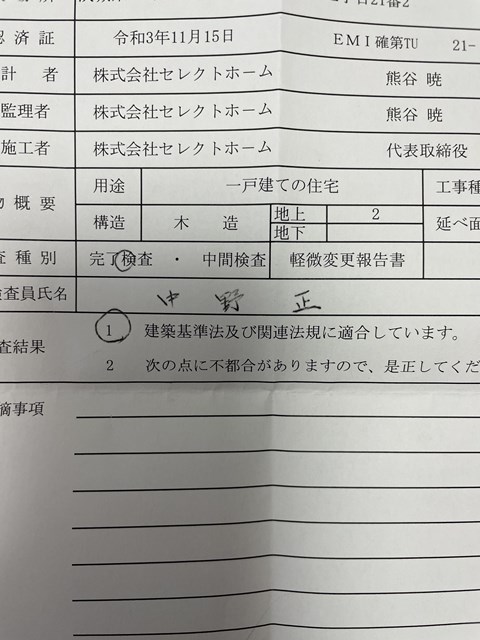 丁目21番2
認済証 令和3年11月15日 EMI確第TU 21-
計者 株式会社セレクトホーム 熊谷 暁
監理者 株式会社セレクトホーム 熊谷 暁
施工者 株式会社セレクトホーム 代表取締役
物概要 用途 一戸建ての住宅 工事種
構造 木造 地上 2 延べ面
地下
査種別 完了検査 ・ 中間検査 軽微変更報告書
検査員氏名 中野 正
1 建築基準法及び関連法規に適合しています。
査結果
2 次の点に不都合がありますので、是正してくだ
摘事項